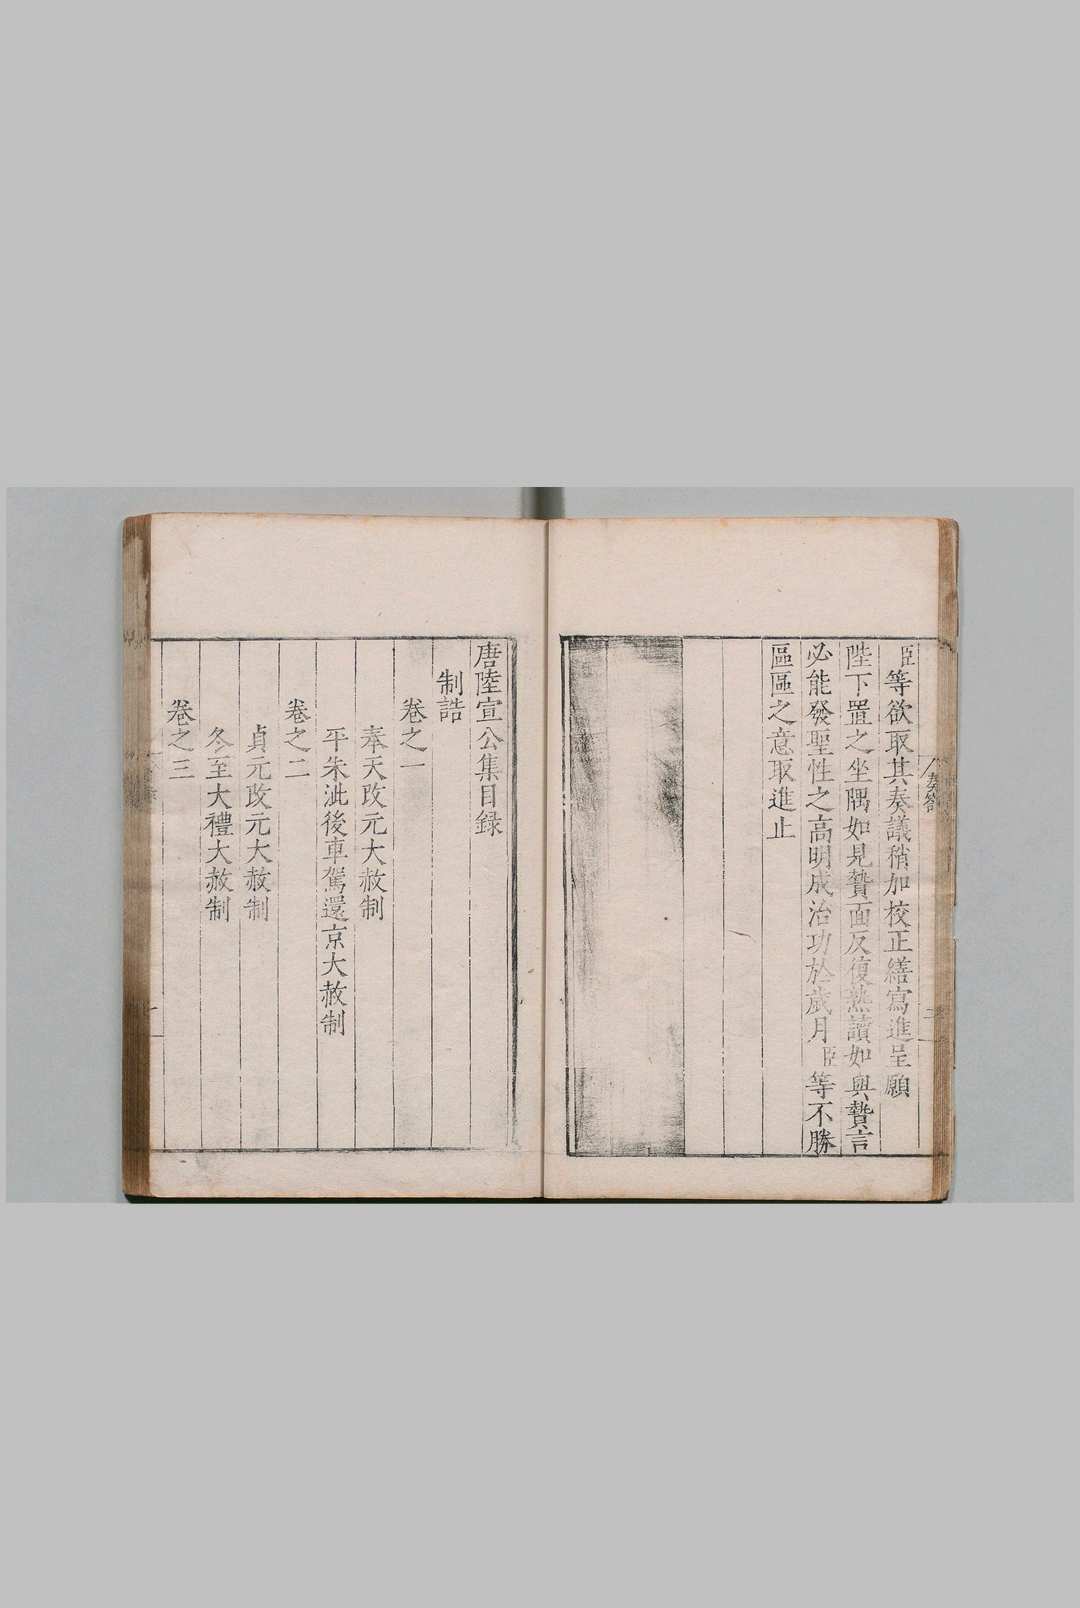 臣等欲取其奏議稍加校正繕寫進呈願
陛下置之坐隅如見贄面反復熟讀如與贄言
必能發聖性之高明成治功於歲月臣等不勝
區區之意取進止
唐陸宣公集目録
制誥
卷之一
奉天改元大赦制
平朱泚後車駕還京大赦制
卷之二
貞元改元大赦制
冬至大禮大赦制
卷之三